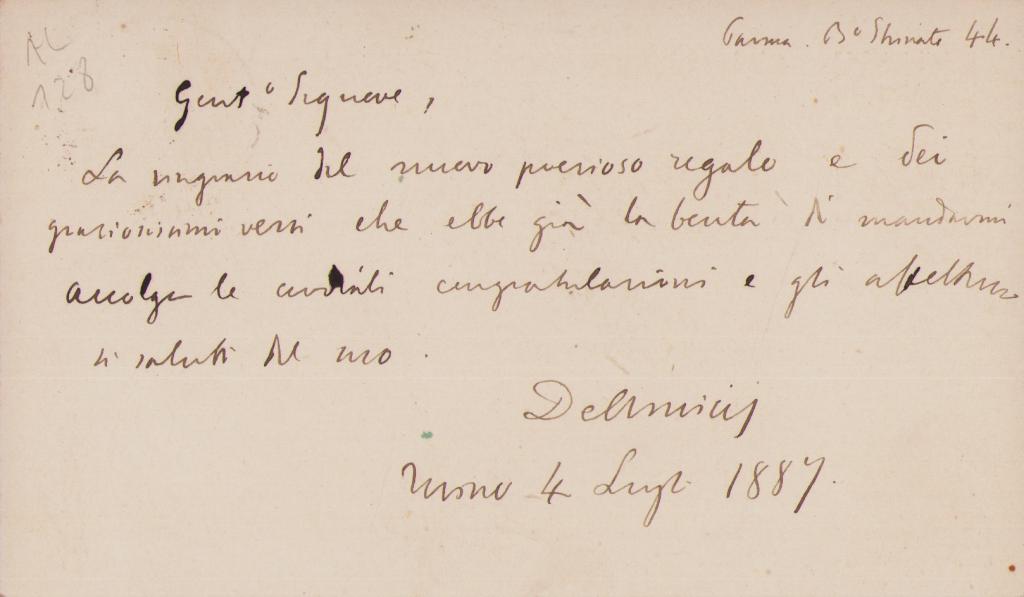 Parma. B.o 44.
AC
128
Gent.o Signore,
La ringrazio del nuovo prezioso regalo e dei
graziosissimi versi che ebbe già la bontà di mandarmi
accolga le cordiali congratulazioni e gli affettuo
si saluti del suo
DeAmicis
Torino 4 Lugl. 1887.